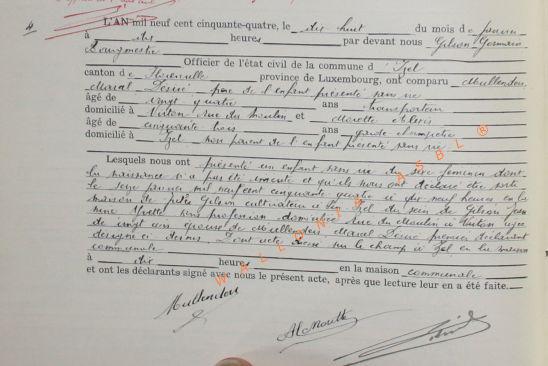 4 L'AN mil neuf cent cinquante-quatre, le dix huit du mois de janvier
à dix heures par devant nous Gilson Germain
Bourgmestre
Officier de l'état civil de la commune d' Izel
canton de Florenville province de Luxembourg, ont comparu Mullendou
Marcel Désiré père de l'enfant présenté sans vie
âgé de vingt quatre ans transporteur
domicilié à Virton Rue du Moulin et Moutte Alexis
âgé de cinquante trois ans garde champêtre
domicilié à Izel non parent de l'enfant présenté sans vie
Lesquels nous ont présenté un enfant sans vie du sexe féminin dont
la naissance n'a pas été et qu'ils nous ont déclaré être sorti
le seize janvier mil neuf cent cinquante quatre à dix neuf heures en la
maison de Gilson cultivateur à Izel du sein de Gilson Jean
nine Yvette sans profession domiciliée Rue du Moulin à Virton âgée
de vingt ans épouse de Mullendou Marcel Désiré premier déclarant
désigné ci dessus. Dont acte sur le champ à Izel en la maison
communale
à dix heures en la maison communale
et ont les déclarants signé avec nous le présent acte, après que lecture leur en a été faite.
WALLONIA ASBL ®
Mullendou
Al Moutte